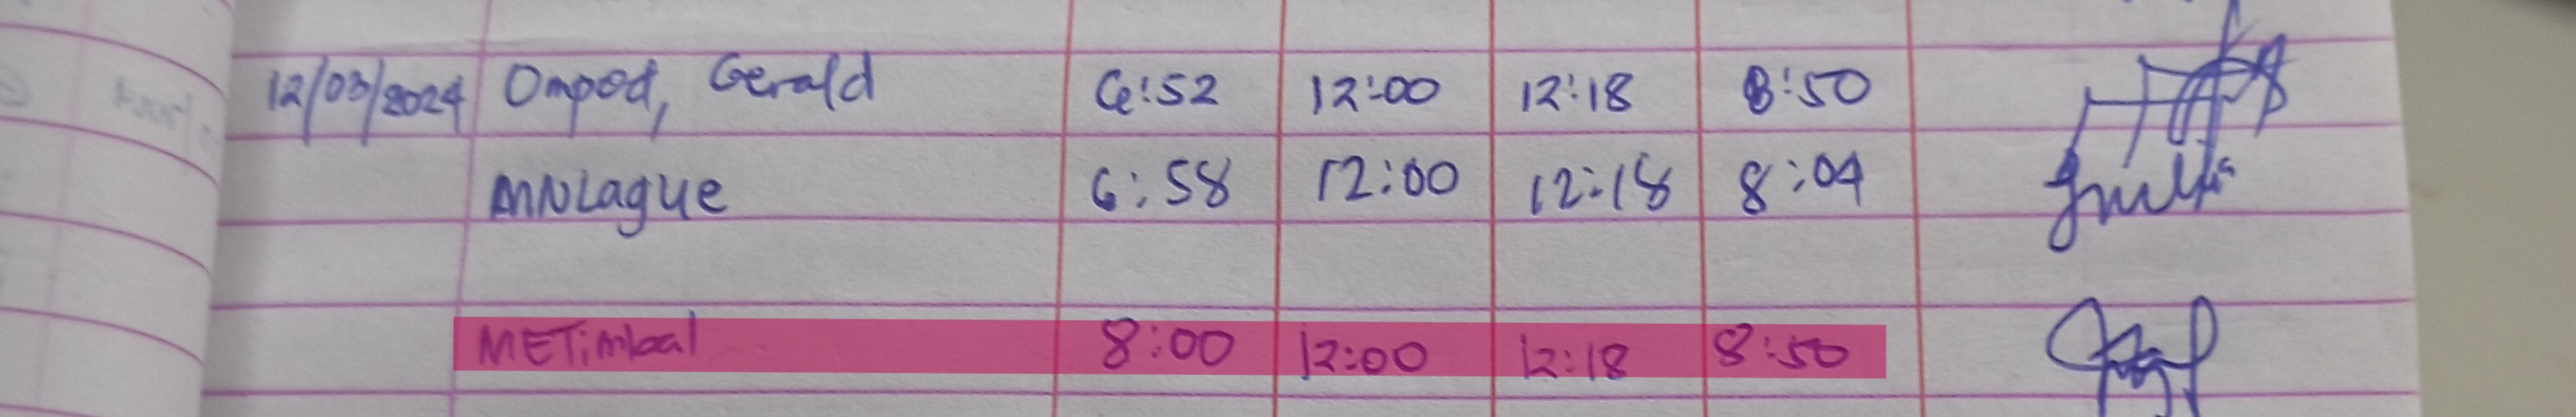 12/03/2024 Ompod, Gerald 6:52 12:00 12:18 8:50
MNLague 6:58 12:00 12:18 8:04
METimbal 8:00 12:00 12:18 8:50